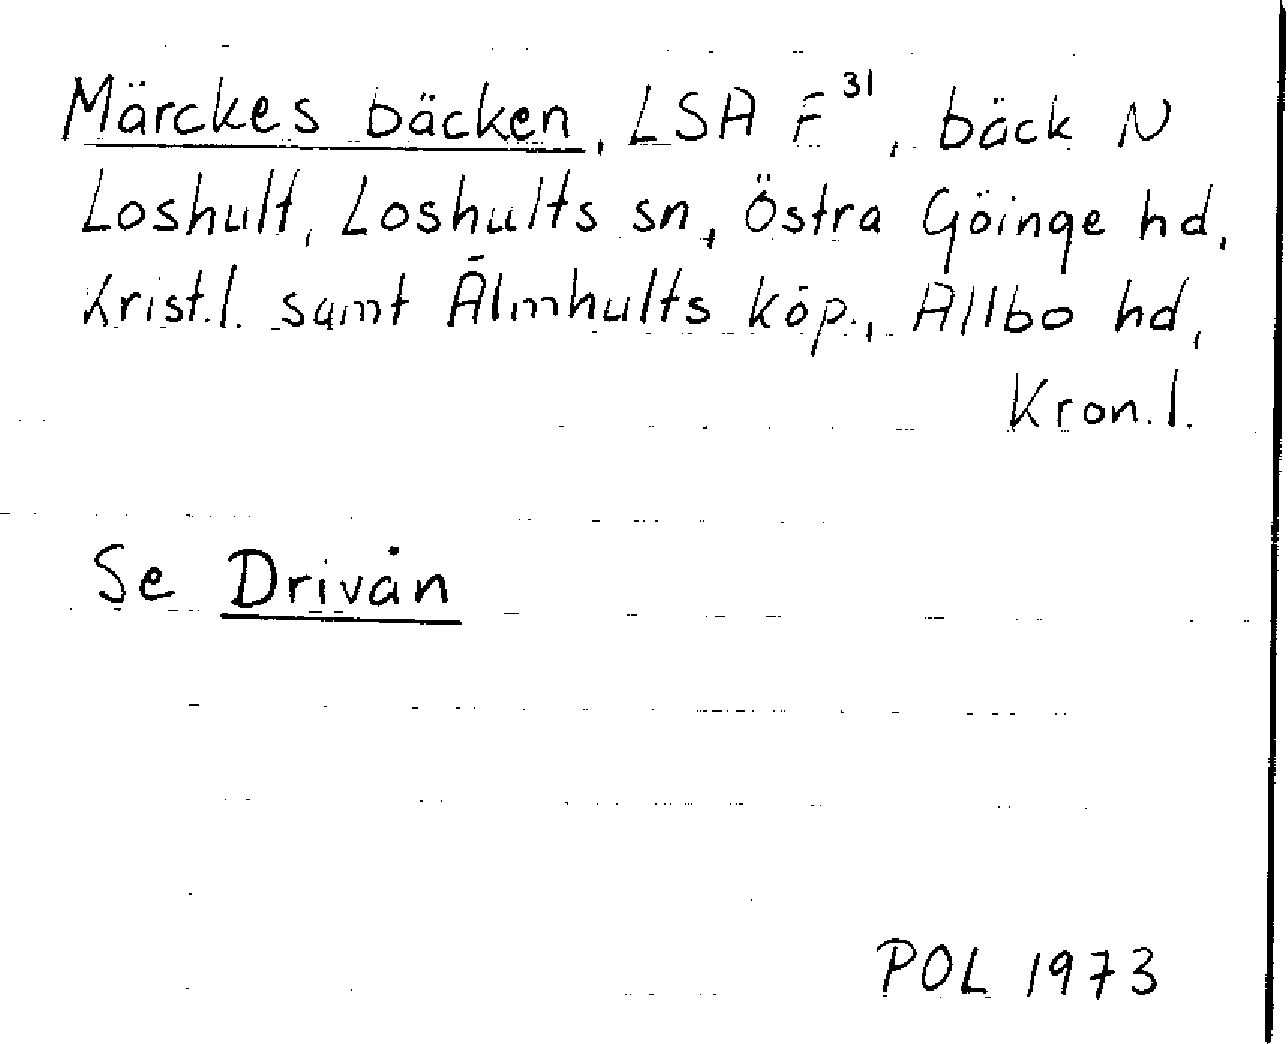 Märckes bäcken, LSA F³¹, bäck N
Loshult, Loshults sn, Östra Göinge hd,
Krist.l. samt Älmhults köp., Allbo hd,
Kron.l.
Se Drivån
POL 1973